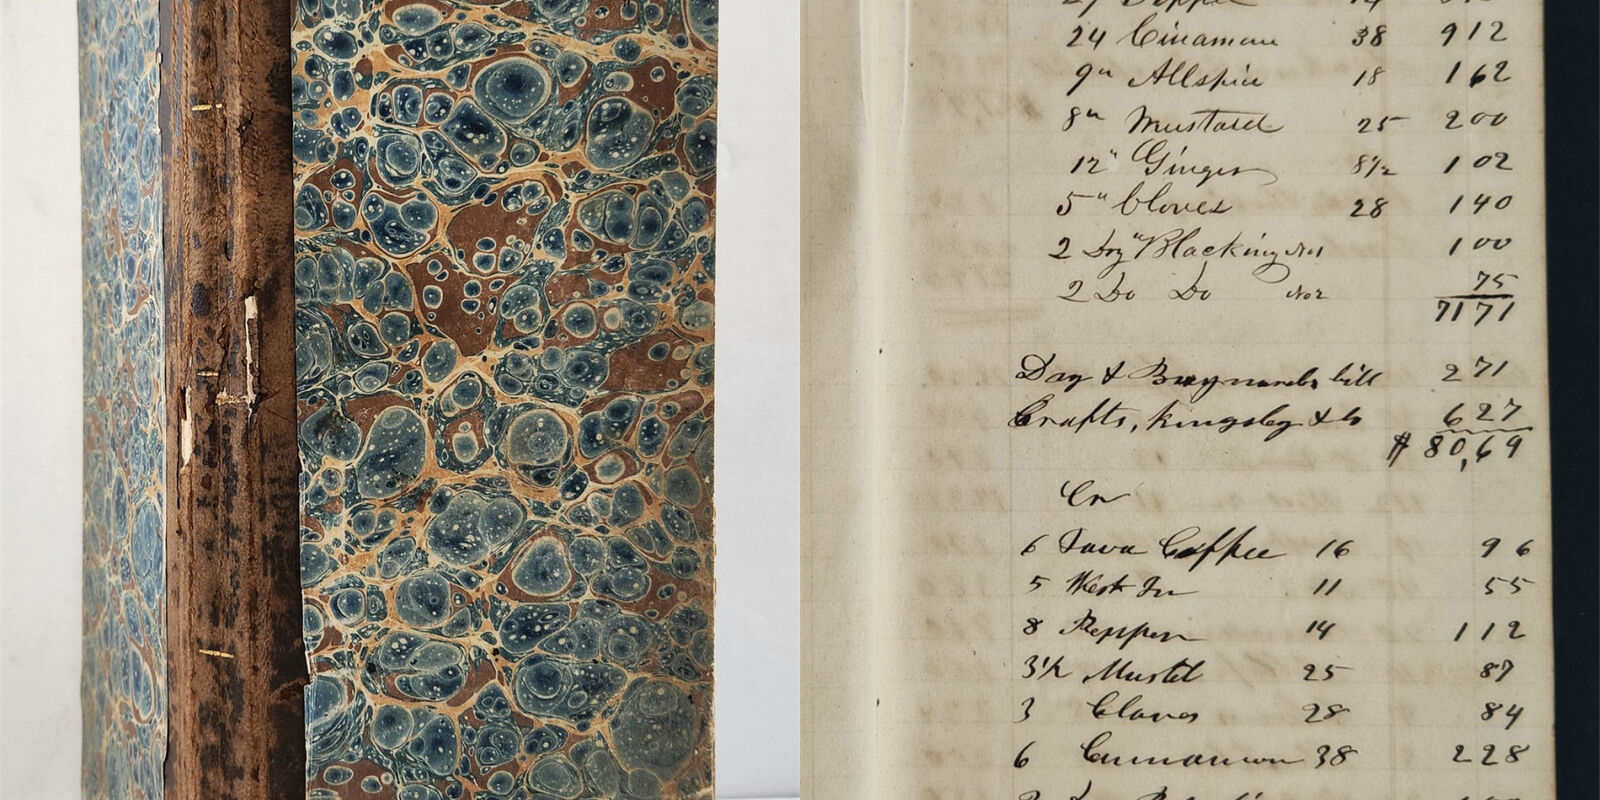 24 Cinamon 38 912
9" Allspice 18 162
8" Mustard 25 200
12" Ginger 8½ 1 02
5" Cloves 28 140
2 Doz" Blacking No1 1 00
2 Do Do No2 75
7171
Day & Bill 271
Crafts, Kingsley & Co 627
$ 80,69
Cr
6 Java Coffee 16 96
5 West In 11 55
8 Pepper 14 112
3½ Mustd 25 87
3 Cloves 28 84
6 Cinnamon 38 228